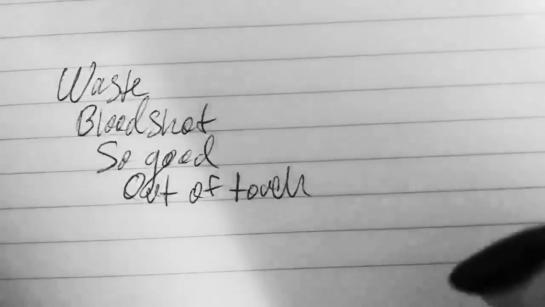 Waste
Bloodshot
So good
Out of touch